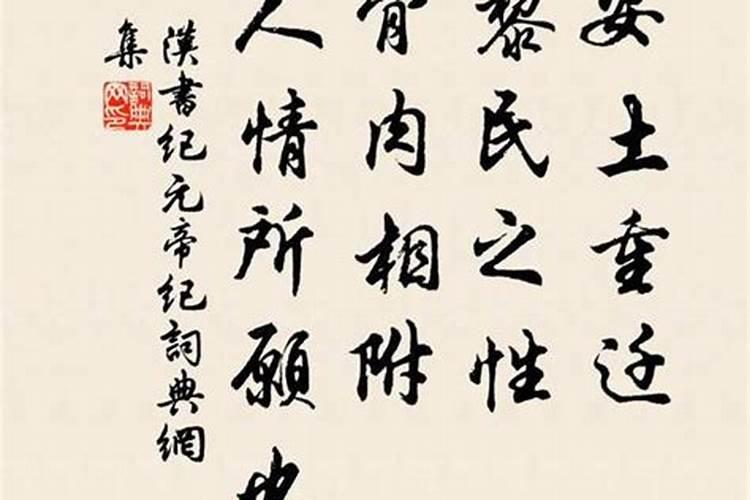 安土重迁
黎民之性
骨肉相附
人情所願也
漢書纪元帝纪詞典網
集
詞典網